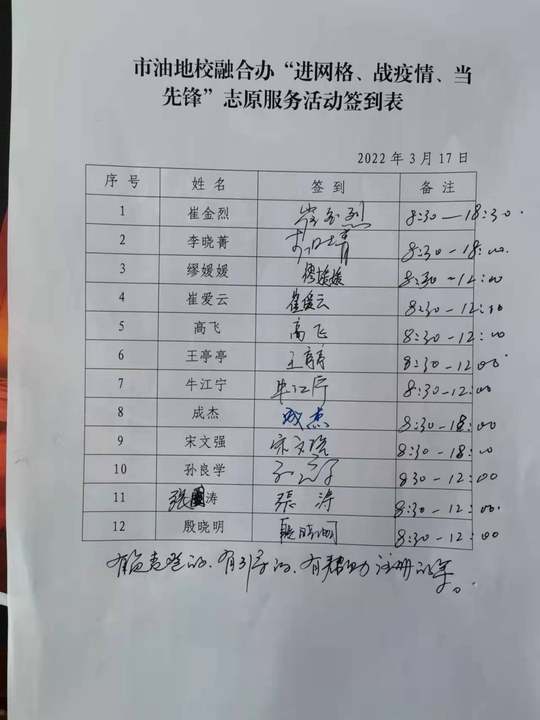 市油地校融合办“进网格、战疫情、当
先锋”志原服务活动签到表
2022 年 3 月 17 日
序号 姓名 签到 备注
1 崔金烈 崔金烈 8:30—18:30.
2 李晓菁 8:30-18:00.
3 缪媛媛 缪媛媛 8:30-12:00
4 崔爱云 崔爱云 8:30-12:00
5 高飞 高飞 8:30-12:00
6 王亭亭 王亭亭 8:30-12:00
7 牛江宁 牛江宁 8:30-12:00
8 成杰 成杰 8:30-18:00
9 宋文强 宋文强 8:30-18:00
10 孙良学 8:30-12:00
11 张涛 張涛 8:30-12:00.
12 殷晓明 殷晓明 8:30-12:00
有负责登的、有引导的、有帮助注册的等。